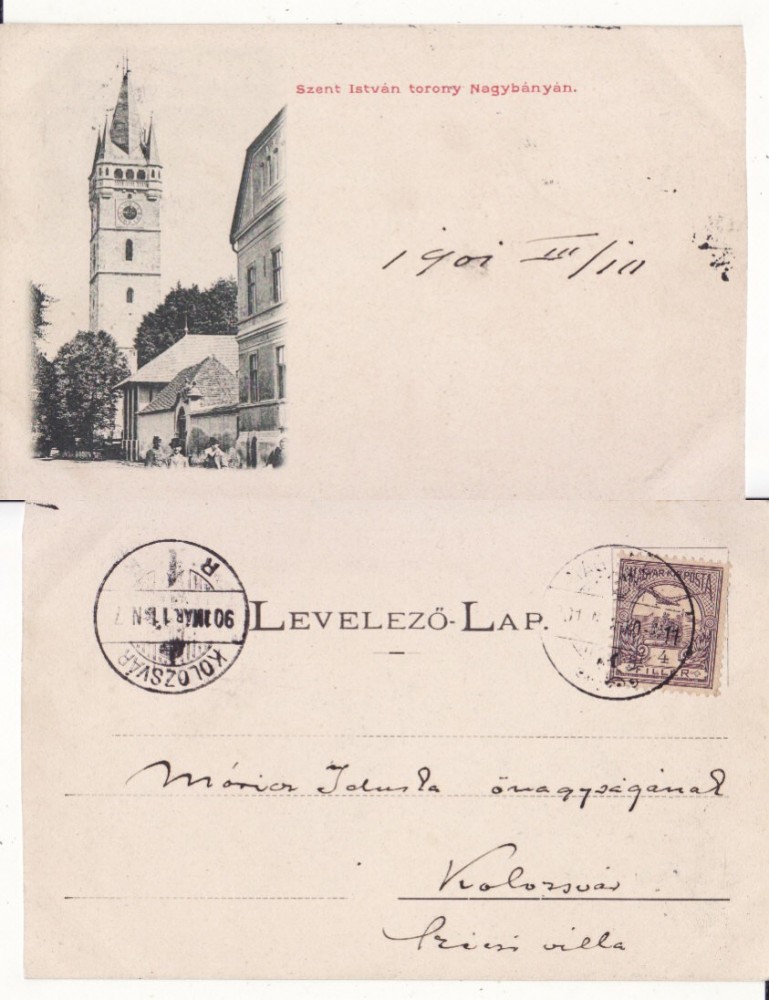 Szent István torony Nagybányán.
1901 III/10
KOLOZSVÁR
901 MÁR.11
LEVELEZŐ-LAP.
MAGYAR KIR. POSTA
4
FILLÉR
Móricz Iduska őnagyságának
Kolozsvár
villa